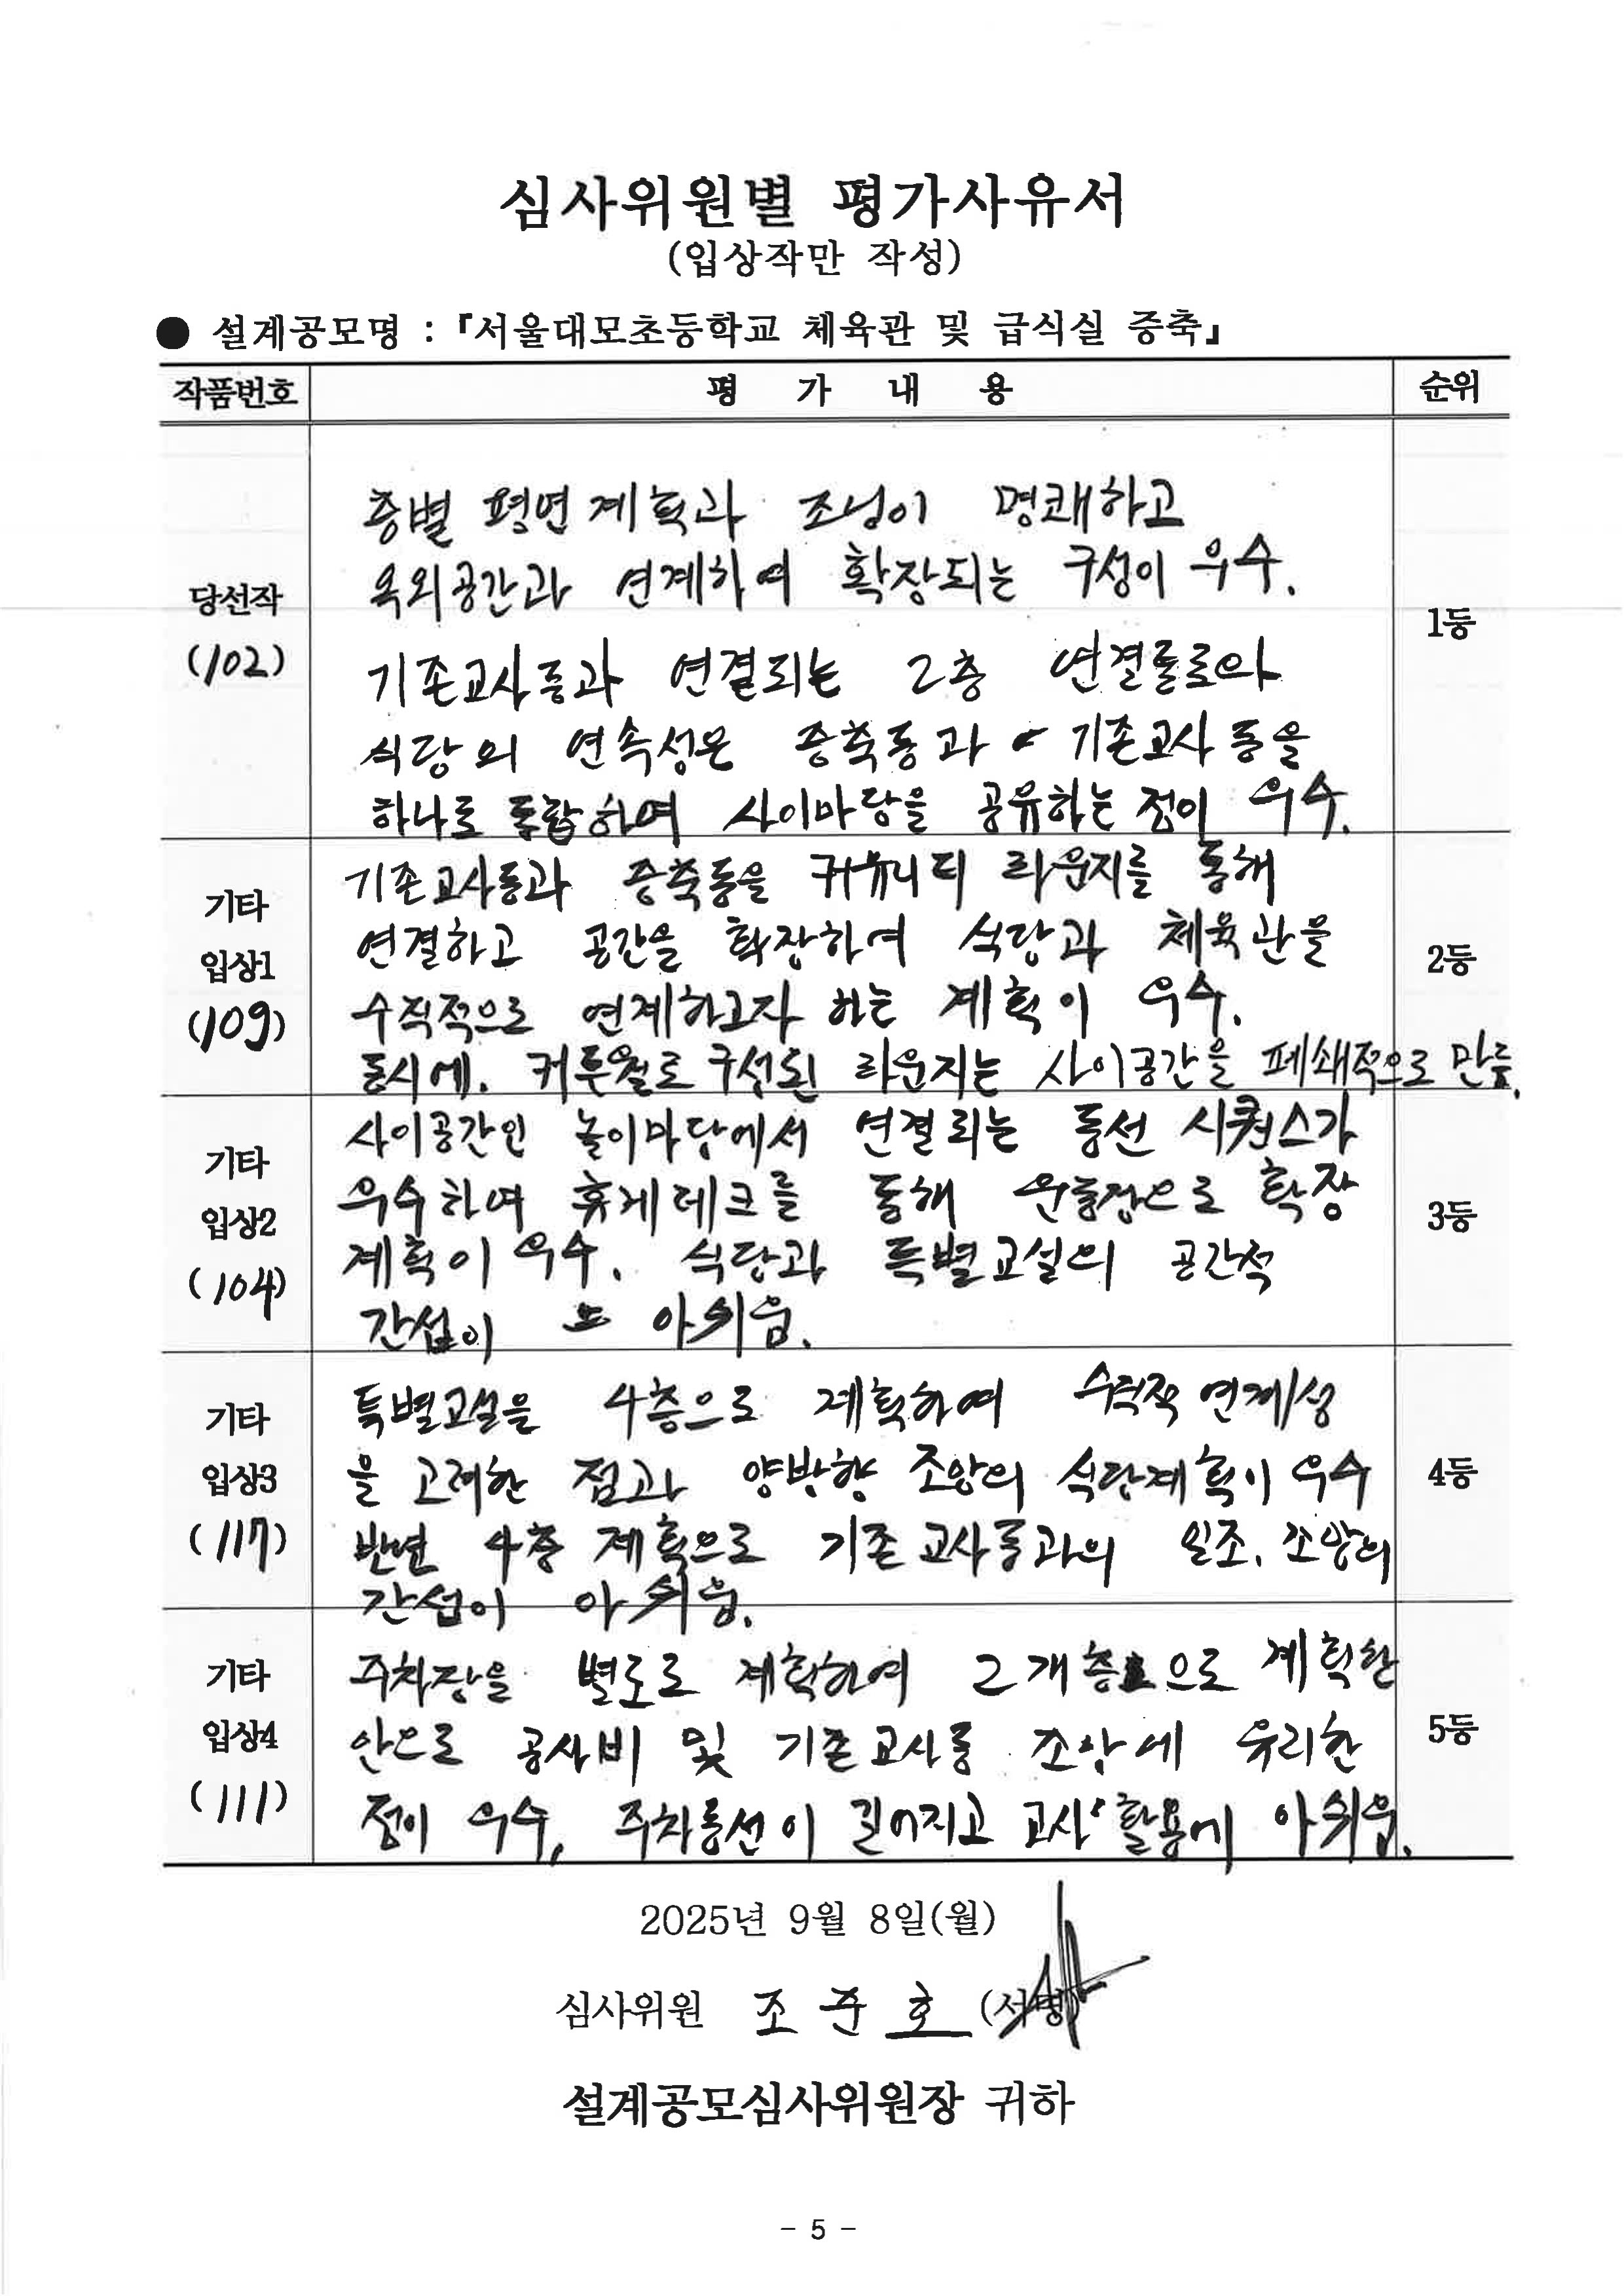 심사위원별 평가사유서
(입상작만 작성)
● 설계공모명 : 『서울대모초등학교 체육관 및 급식실 증축』
작품번호 평 가 내 용 순위
당선작
(102)
층별 평면계획과 조닝이 명쾌하고
옥외공간과 연계하여 확장되는 구성이 우수.
기존교사동과 연결되는 2층 연결통로와
식당의 연속성은 증축동과 기존교사동을
하나로 통합하여 사이마당을 공유하는 점이 우수.
1등
기타
입상1
(109)
기존교사동과 증축동을 커뮤니티 라운지를 통해
연결하고 공간을 확장하여 식당과 체육관을
수직적으로 연계하고자 하는 계획이 우수.
동시에. 커튼월로 구성된 라운지는 사이공간을 폐쇄적으로 만듦.
2등
기타
입상2
(104)
사이공간인 놀이마당에서 연결되는 동선 시퀀스가
우수하여 휴게데크를 통해 운동장으로 확장
계획이 우수. 식당과 특별교실의 공간적
간섭이 아쉬움.
3등
기타
입상3
(117)
특별교실을 4층으로 계획하여 수직적 연계성
을 고려한 점과 양방향 조망의 식당계획이 우수
반면 4층 계획으로 기존교사동과의 일조, 조망의
간섭이 아쉬움.
4등
기타
입상4
(111)
주차장을 별도로 계획하여 2개층으로 계획한
안으로 공사비 및 기존교사동 조망에 유리한
점이 우수, 주차동선이 길어지고 교사 활용에 아쉬움.
5등
2025년 9월 8일(월)
심사위원 조 준 호 (서명)
설계공모심사위원장 귀하
- 5 -